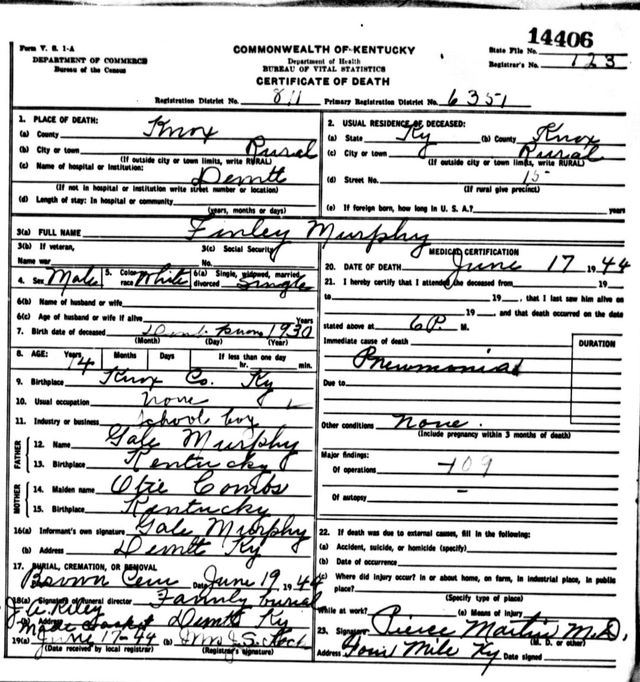 14406
Form V. S. 1-A
COMMONWEALTH OF KENTUCKY
State File No.
DEPARTMENT OF COMMERCE
Department of Health
Registrar's No. 123
Bureau of the Census
BUREAU OF VITAL STATISTICS
CERTIFICATE OF DEATH
Registration District No. 811 Primary Registration District No. 6351
1. PLACE OF DEATH:
(a) County Knox
(b) City or town Rural
(If outside city or town limits, write RURAL)
(c) Name of hospital or institution:
Demtt
(If not in hospital or institution write street number or location)
(d) Length of stay: In hospital or community
(years, months or days)
2. USUAL RESIDENCE OF DECEASED:
(a) State Ky (b) County Knox
(c) City or town Rural
(If outside city or town limits, write RURAL)
(d) Street No. 15
(If rural give precinct)
(e) If foreign born, how long in U. S. A.? years
3(a) FULL NAME Finley Murphy
3(b) If veteran,
Name war
3(c) Social Security
No.
4. Sex Male 5. Color race White 6(a) Single, widowed, married, divorced Single
6(b) Name of husband or wife
6(c) Age of husband or wife if alive Years
7. Birth date of deceased Dont Know 1930
(Month) (Day) (Year)
8. AGE: Years 14 Months Days If less than one day
hr. min.
9. Birthplace Knox Co. Ky
10. Usual occupation none
11. Industry or business School boy
FATHER
12. Name Gale Murphy
13. Birthplace Kentucky
MOTHER
14. Maiden name Otie Combs
15. Birthplace Kentucky
16(a) Informant's own signature Gale Murphy
(b) Address Demtt Ky
17. BURIAL, CREMATION, OR REMOVAL
Brown Cem Date June 19, 1944
18(a) Signature of funeral director Family burial
Demtt Ky
19(a) June 17-44 (b)
(Date received by local registrar) (Registrar's signature)
MEDICAL CERTIFICATION
20. DATE OF DEATH June 17 1944
21. I hereby certify that I attended the deceased from 19
to 19 , that I last saw him alive on
19 and that death occurred on the date
stated above at 6 P. M.
Immediate cause of death
DURATION
Pneumonia
Due to
Other conditions none.
(Include pregnancy within 3 months of death)
Major findings:
Of operations 109
Of autopsy -
22. If death was due to external causes, fill in the following:
(a) Accident, suicide, or homicide (specify)
(b) Date of occurrence
(c) Where did injury occur? In or about home, on farm, in industrial place, in public
place?
(Specify type of place)
While at work? (e) Means of Injury
23. Signature Pierce Martin M.D.
(M. D. or other)
Address Four Mile Ky Date signed